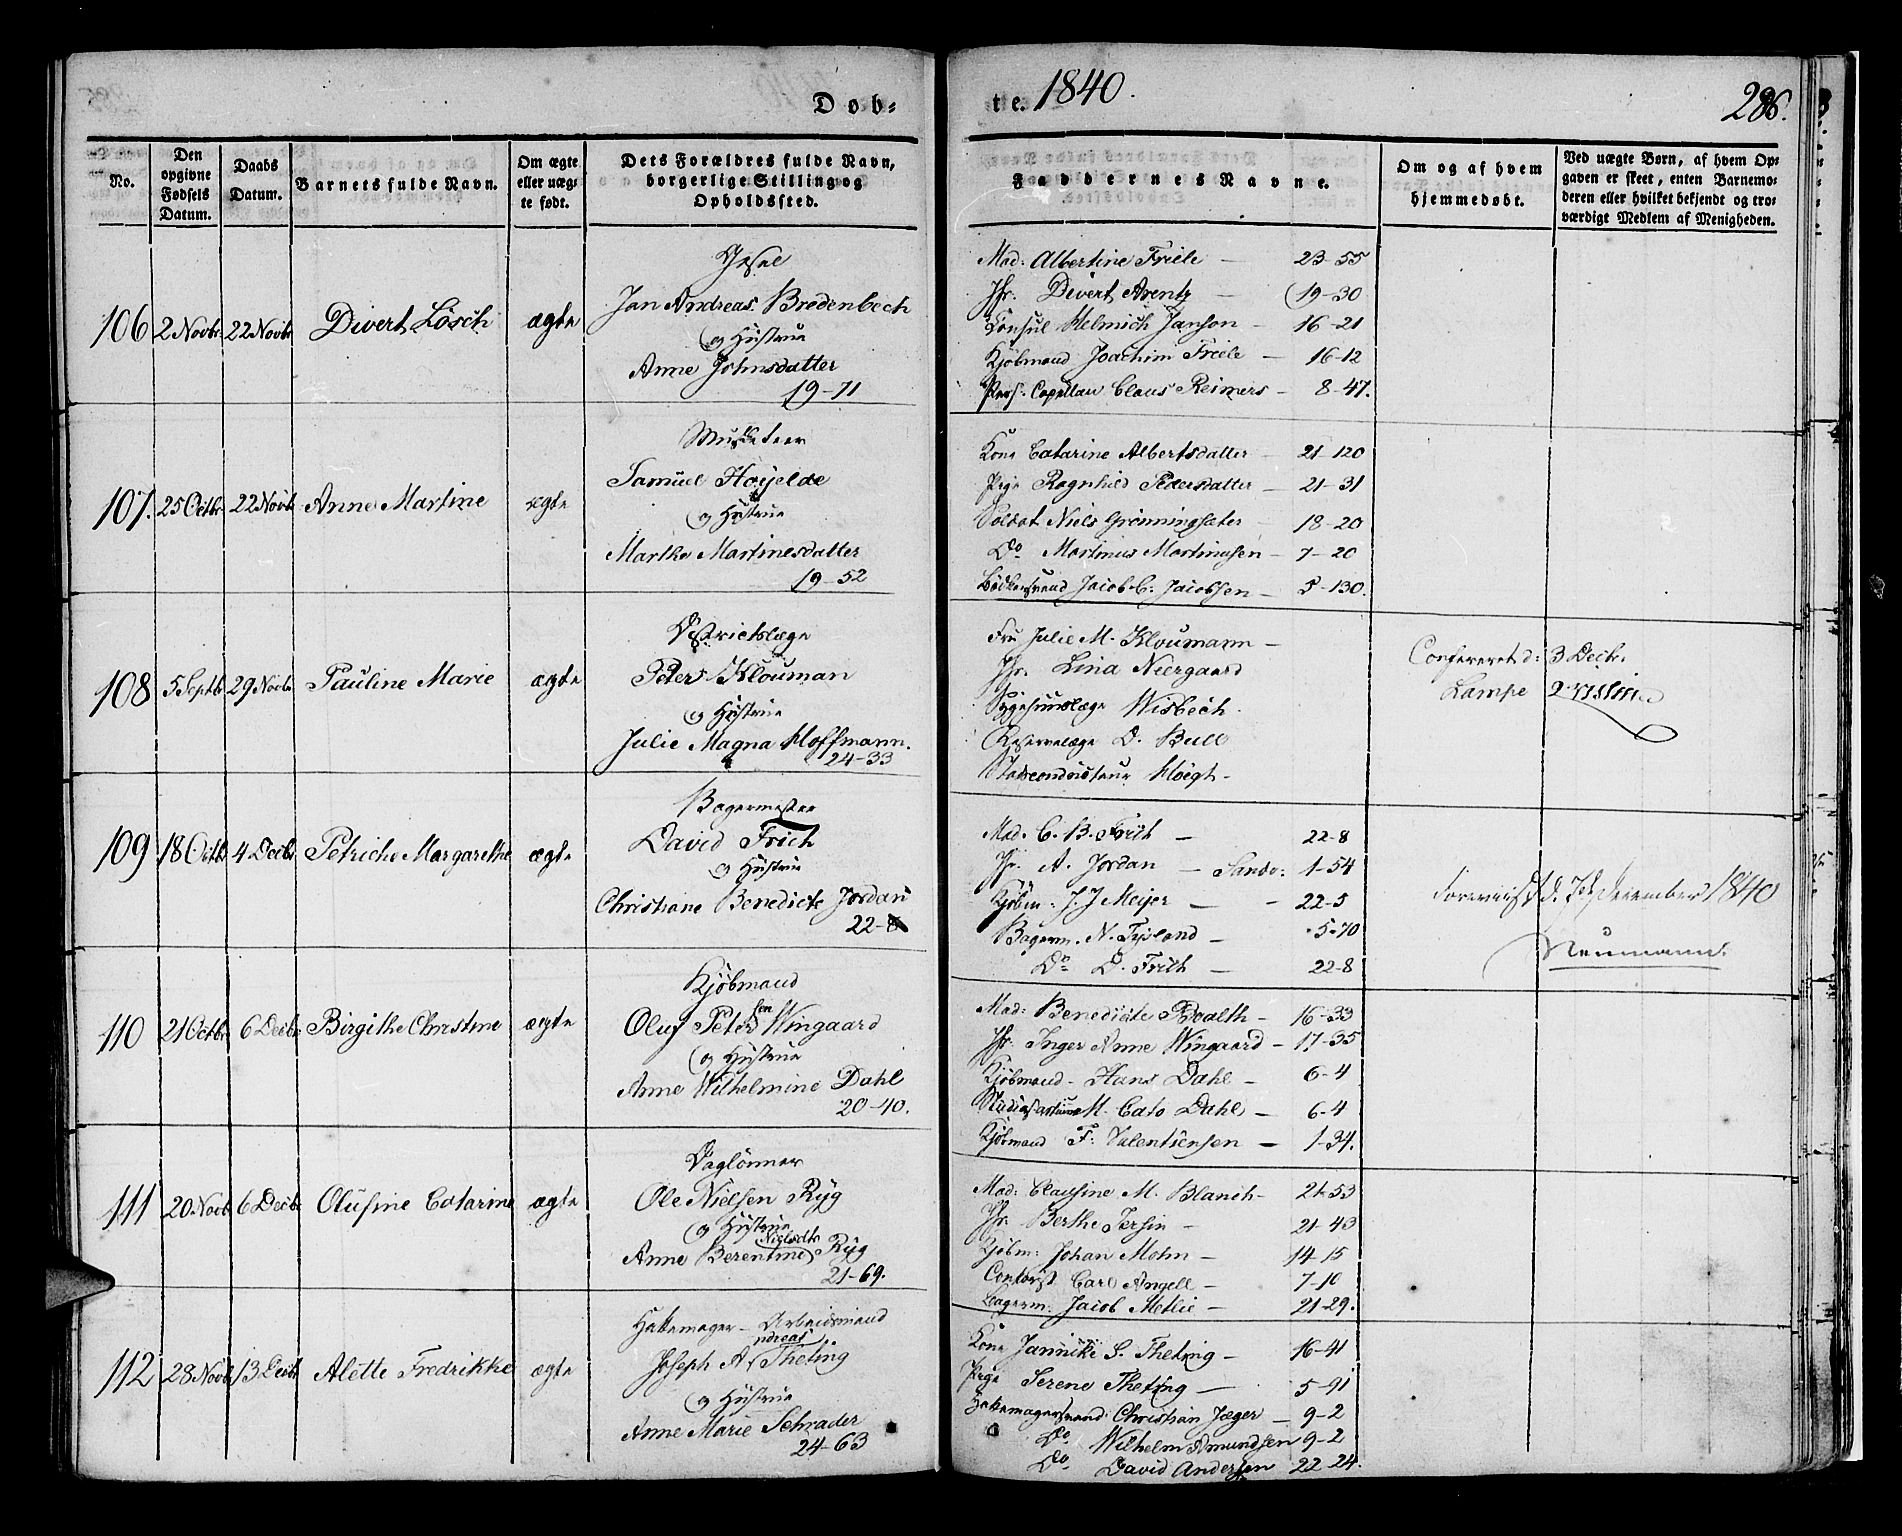 Døb-
te. 1840.
286.
No.
Den opgivne Fødsels Datum.
Daabs Datum.
Barnets fulde Navn.
Om ægte eller uægte født.
Dets Forældres fulde Navn, borgerlige Stilling og Opholdssted.
Faddernes Navne.
Om og af hvem hjemmedøbt.
Ved uægte Børn, af hvem Opgaven er skeet, enten Barnemoderen eller hvilket bekjendt og troværdigt Medlem af Menigheden.
106 2 Novbr 22 Novbr Divert Lösch ægte
Jan Andreas Bredenbech
og Hustrue
Anne Johnsdatter
19-71
Mad: Albertine Friele — 23-55
Jfr. Divert Arentz — 19-30
Konsul Helmich Janson — 16-21
Kjöbmand Joachim Friele — 16-12
Pers: Capellan Claus Reimers — 8-47.
107. 25 Octbr 22 Novbr Anne Martine ægte
Musketeer
Samuel
og Hustrue
Marthe Martinesdatter
19-52
Kone Catarine Albertsdatter — 21-120
Pige Ragnhild Pedersdatter — 21-31
Soldat Niels Grönningsæter — 18-20
Do Martinus Martinusen — 7-20
Bödkersvend Jacob C. Jacobsen — 5-130.
108 5 Septbr 29 Novbr Pauline Marie ægte
Districtslæge
Peter Klouman
og Hustrue
Julie Magna Hoffmann.
24-33
Fru Julie M. Kloumann —
Jfr. Lina Niergaard
Sygehuuslæge Wisbech.
Reservelæge D. Bull
Stadsconducteur Hoegh -
Confereret d: 3 Decbr.
Lampe
109 18 Octbr 4 Decbr Petriche Margarethe ægte
Bagermester
David Frich
og Hustrue
Christiane Benedicte Jordan
22-8
Mad. C. B. Frich — 22-8
Jfr. A. Jordan — Sandv: 1-54
Kjöbm: J. J. Meyer — 22-5
Bagerm. N. Tysland — 5-70
Do D. Frich — 22-8
Foreviist d. 7de December 1840
Neumann.
110 21 Octbr 6 Decbr Birgithe Christine ægte
Kjöbmand
Oluf Petersen Wingaard
og Hustrue
Anne Wilhelmine Dahl
20-40.
Mad: Benedicte — 16-33
Jfr. Inger Anne Wingaard — 17-35
Kjöbmand - Hans Dahl — 6-4
M. Cato Dahl — 6-4
Kjöbmand F. Valentiensen — 1-34.
111 20 Novb 6 Decbr Olufine Catarine ægte
Daglönner
Ole Nielsen Ryg
og Hustrue
Anne Berentine Nielsdtr Ryg
21-69.
Mad: Clausine M. Blanch - 21-53
Jfr Berthe Jersin — 21-43
Kjöbm: Johan Mohn — 14-15
Contorist Carl Angell — 7-10
Bagerm: Jacob — 21-29.
112 28 Novb 13 Decbr Alette Fredrikke ægte
Hattemager - Arbeidsmand
Joseph Andreas Theting
og Hustrue
Anne Marie Schrader
24-63
Kone Jannike S. Theting — 16-41
Pige Serene Theting — 5-91
Hattemagersvend: Christian Jæger — 9-2
Do Wilhelm Amundsen 9-2
Do David Andersen 22-24.